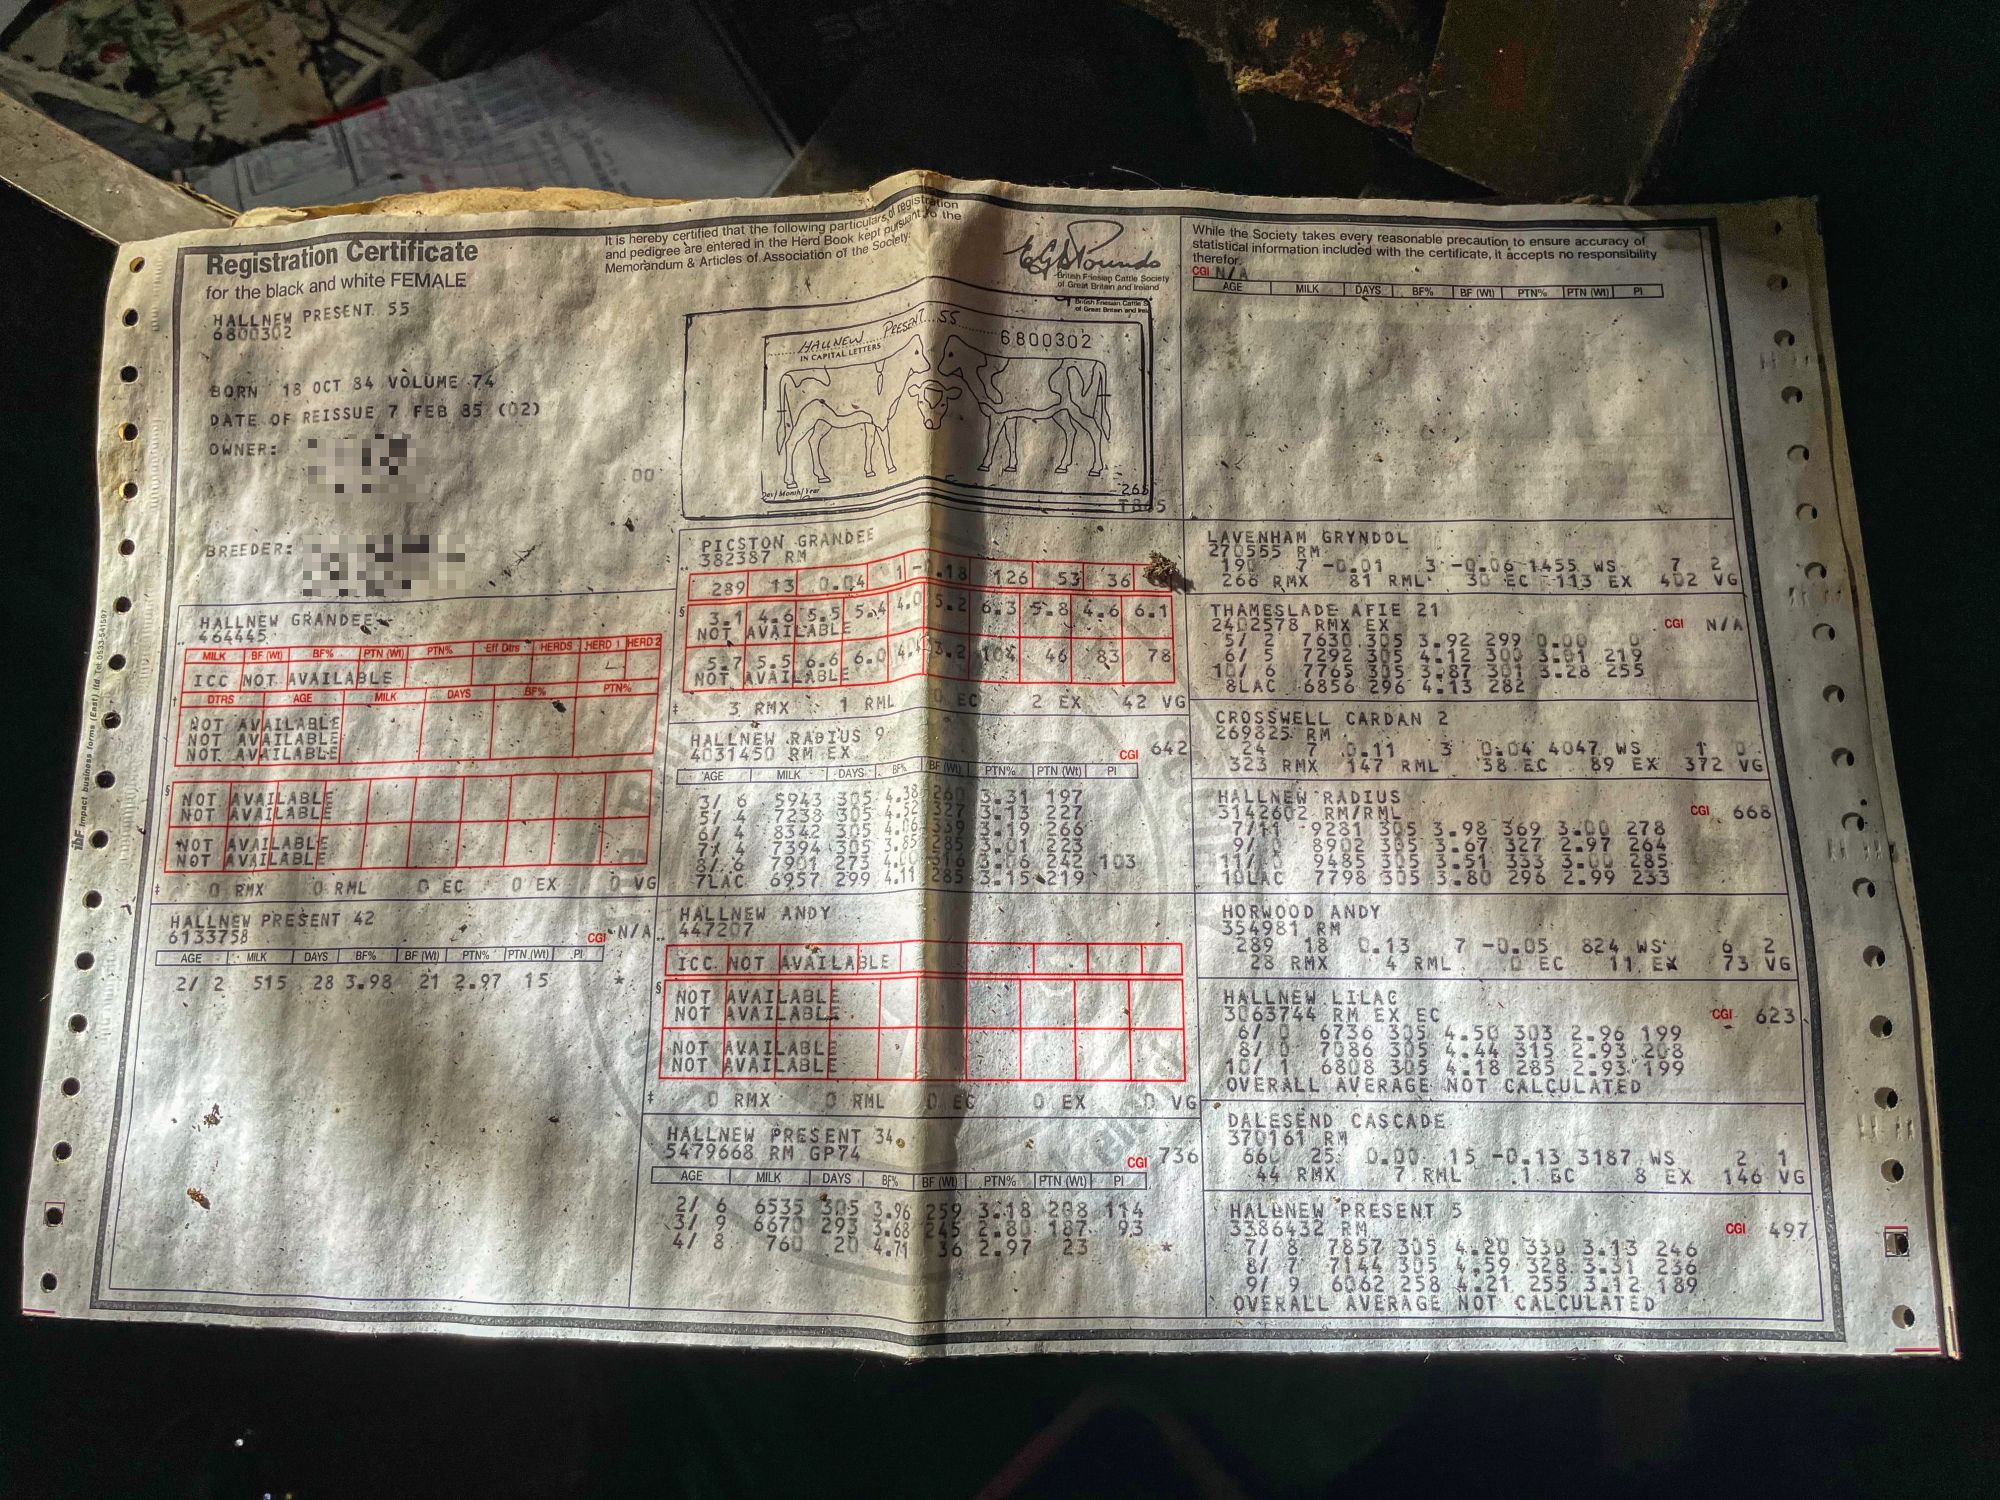 Registration Certificate
for the black and white FEMALE
HALLNEW PRESENT 55
6800302
BORN 18 OCT 84 VOLUME 74
DATE OF REISSUE 7 FEB 85 (02)
OWNER:
00
BREEDER:
It is hereby certified that the following particulars of registration
and pedigree are entered in the Herd Book kept pursuant to the
Memorandum & Articles of Association of the Society.
British Friesian Cattle Society
of Great Britain and Ireland
HALLNEW PRESENT 55
IN CAPITAL LETTERS
6800302
Day/Month/Year
While the Society takes every reasonable precaution to ensure accuracy of
statistical information included with the certificate, it accepts no responsibility
therefor.
CGI N/A
AGE MILK DAYS BF% BF (Wt) PTN% PTN (Wt) PI
HALLNEW GRANDEE
464445
MILK BF (Wt) BF% PTN (Wt) PTN% Eff Dtrs HERDS HERD 1 HERD 2
ICC NOT AVAILABLE
DTRS AGE MILK DAYS BF% PTN%
NOT AVAILABLE
NOT AVAILABLE
NOT AVAILABLE
NOT AVAILABLE
NOT AVAILABLE
NOT AVAILABLE
NOT AVAILABLE
0 RMX 0 RML 0 EC 0 EX 0 VG
HALLNEW PRESENT 42
6133758
CGI N/A
AGE MILK DAYS BF% BF (Wt) PTN% PTN (Wt) PI
2/ 2 515 28 3.98 21 2.97 15 *
PICSTON GRANDEE
382387 RM
289 13 0.04 1 -0.18 126 53 36
3.1 4.6 5.5 5.4 4.0 5.2 6.3 5.8 4.6 6.1
NOT AVAILABLE
5.7 5.5 6.6 6.0 4.4 3.2 104 46 83 78
NOT AVAILABLE
3 RMX 1 RML 0 EC 2 EX 42 VG
HALLNEW RADIUS 9
4031450 RM EX
CGI 642
AGE MILK DAYS BF% BF (Wt) PTN% PTN (Wt) PI
3/ 6 5943 305 4.38 260 3.31 197
5/ 4 7238 305 4.52 327 3.13 227
6/ 4 8342 305 4.06 339 3.19 266
7/ 4 7394 305 3.85 285 3.01 223
8/ 6 7901 273 4.00 316 3.06 242 103
7LAC 6957 299 4.11 285 3.15 219
HALLNEW ANDY
447207
ICC NOT AVAILABLE
NOT AVAILABLE
NOT AVAILABLE
NOT AVAILABLE
NOT AVAILABLE
0 RMX 0 RML 0 EC 0 EX 0 VG
HALLNEW PRESENT 34
5479668 RM GP74
CGI 736
AGE MILK DAYS BF% BF (Wt) PTN% PTN (Wt) PI
2/ 6 6535 305 3.96 259 3.18 208 114
3/ 9 6670 293 3.68 245 2.80 187 93
4/ 8 760 20 4.71 36 2.97 23 *
LAVENHAM GRYNDOL
270555 RM
190 7 -0.01 3 -0.06 1455 WS 7 2
266 RMX 81 RML 30 EC 113 EX 402 VG
THAMESLADE AFIE 21
2402578 RMX EX
CGI N/A
5/ 2 7630 305 3.92 299 0.00 0
6/ 5 7292 305 4.12 300 3.01 219
10/ 6 7765 305 3.87 301 3.28 255
8LAC 6856 296 4.13 282
CROSSWELL CARDAN 2
269825 RM
24 7 0.11 3 0.04 4047 WS 1 0
323 RMX 147 RML 38 EC 89 EX 372 VG
HALLNEW RADIUS
3142602 RM/RML
CGI 668
7/11 9281 305 3.98 369 3.00 278
9/ 0 8902 305 3.67 327 2.97 264
11/ 0 9485 305 3.51 333 3.00 285
10LAC 7798 305 3.80 296 2.99 233
HORWOOD ANDY
354981 RM
289 18 0.13 7 -0.05 824 WS 6 2
28 RMX 4 RML 0 EC 11 EX 73 VG
HALLNEW LILAC
3063744 RM EX EC
CGI 623
6/ 0 6736 305 4.50 303 2.96 199
8/ 0 7086 305 4.44 315 2.93 208
10/ 1 6808 305 4.18 285 2.93 199
OVERALL AVERAGE NOT CALCULATED
DALESEND CASCADE
370161 RM
660 25 0.00 15 -0.13 3187 WS 2 1
44 RMX 7 RML 1 EC 8 EX 146 VG
HALLNEW PRESENT 5
3386432 RM
CGI 497
7/ 8 7857 305 4.20 330 3.13 246
8/ 7 7144 305 4.59 328 3.31 236
9/ 9 6062 258 4.21 255 3.12 189
OVERALL AVERAGE NOT CALCULATED